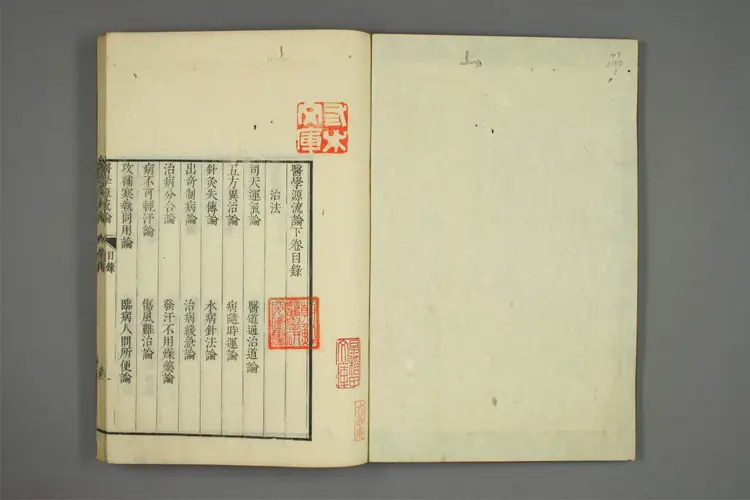 醫學源流論下卷目錄
治法
司天運氣論
醫道通治道論
五方異治論
病隨時運論
針灸失傳論
水病針法論
出奇制病論
治病緩急論
治病分合論
發汗不用燥藥論
病不可輕汗論
傷風難治論
攻補寒熱同用論
臨病人問所便論
醫學源流論
目錄